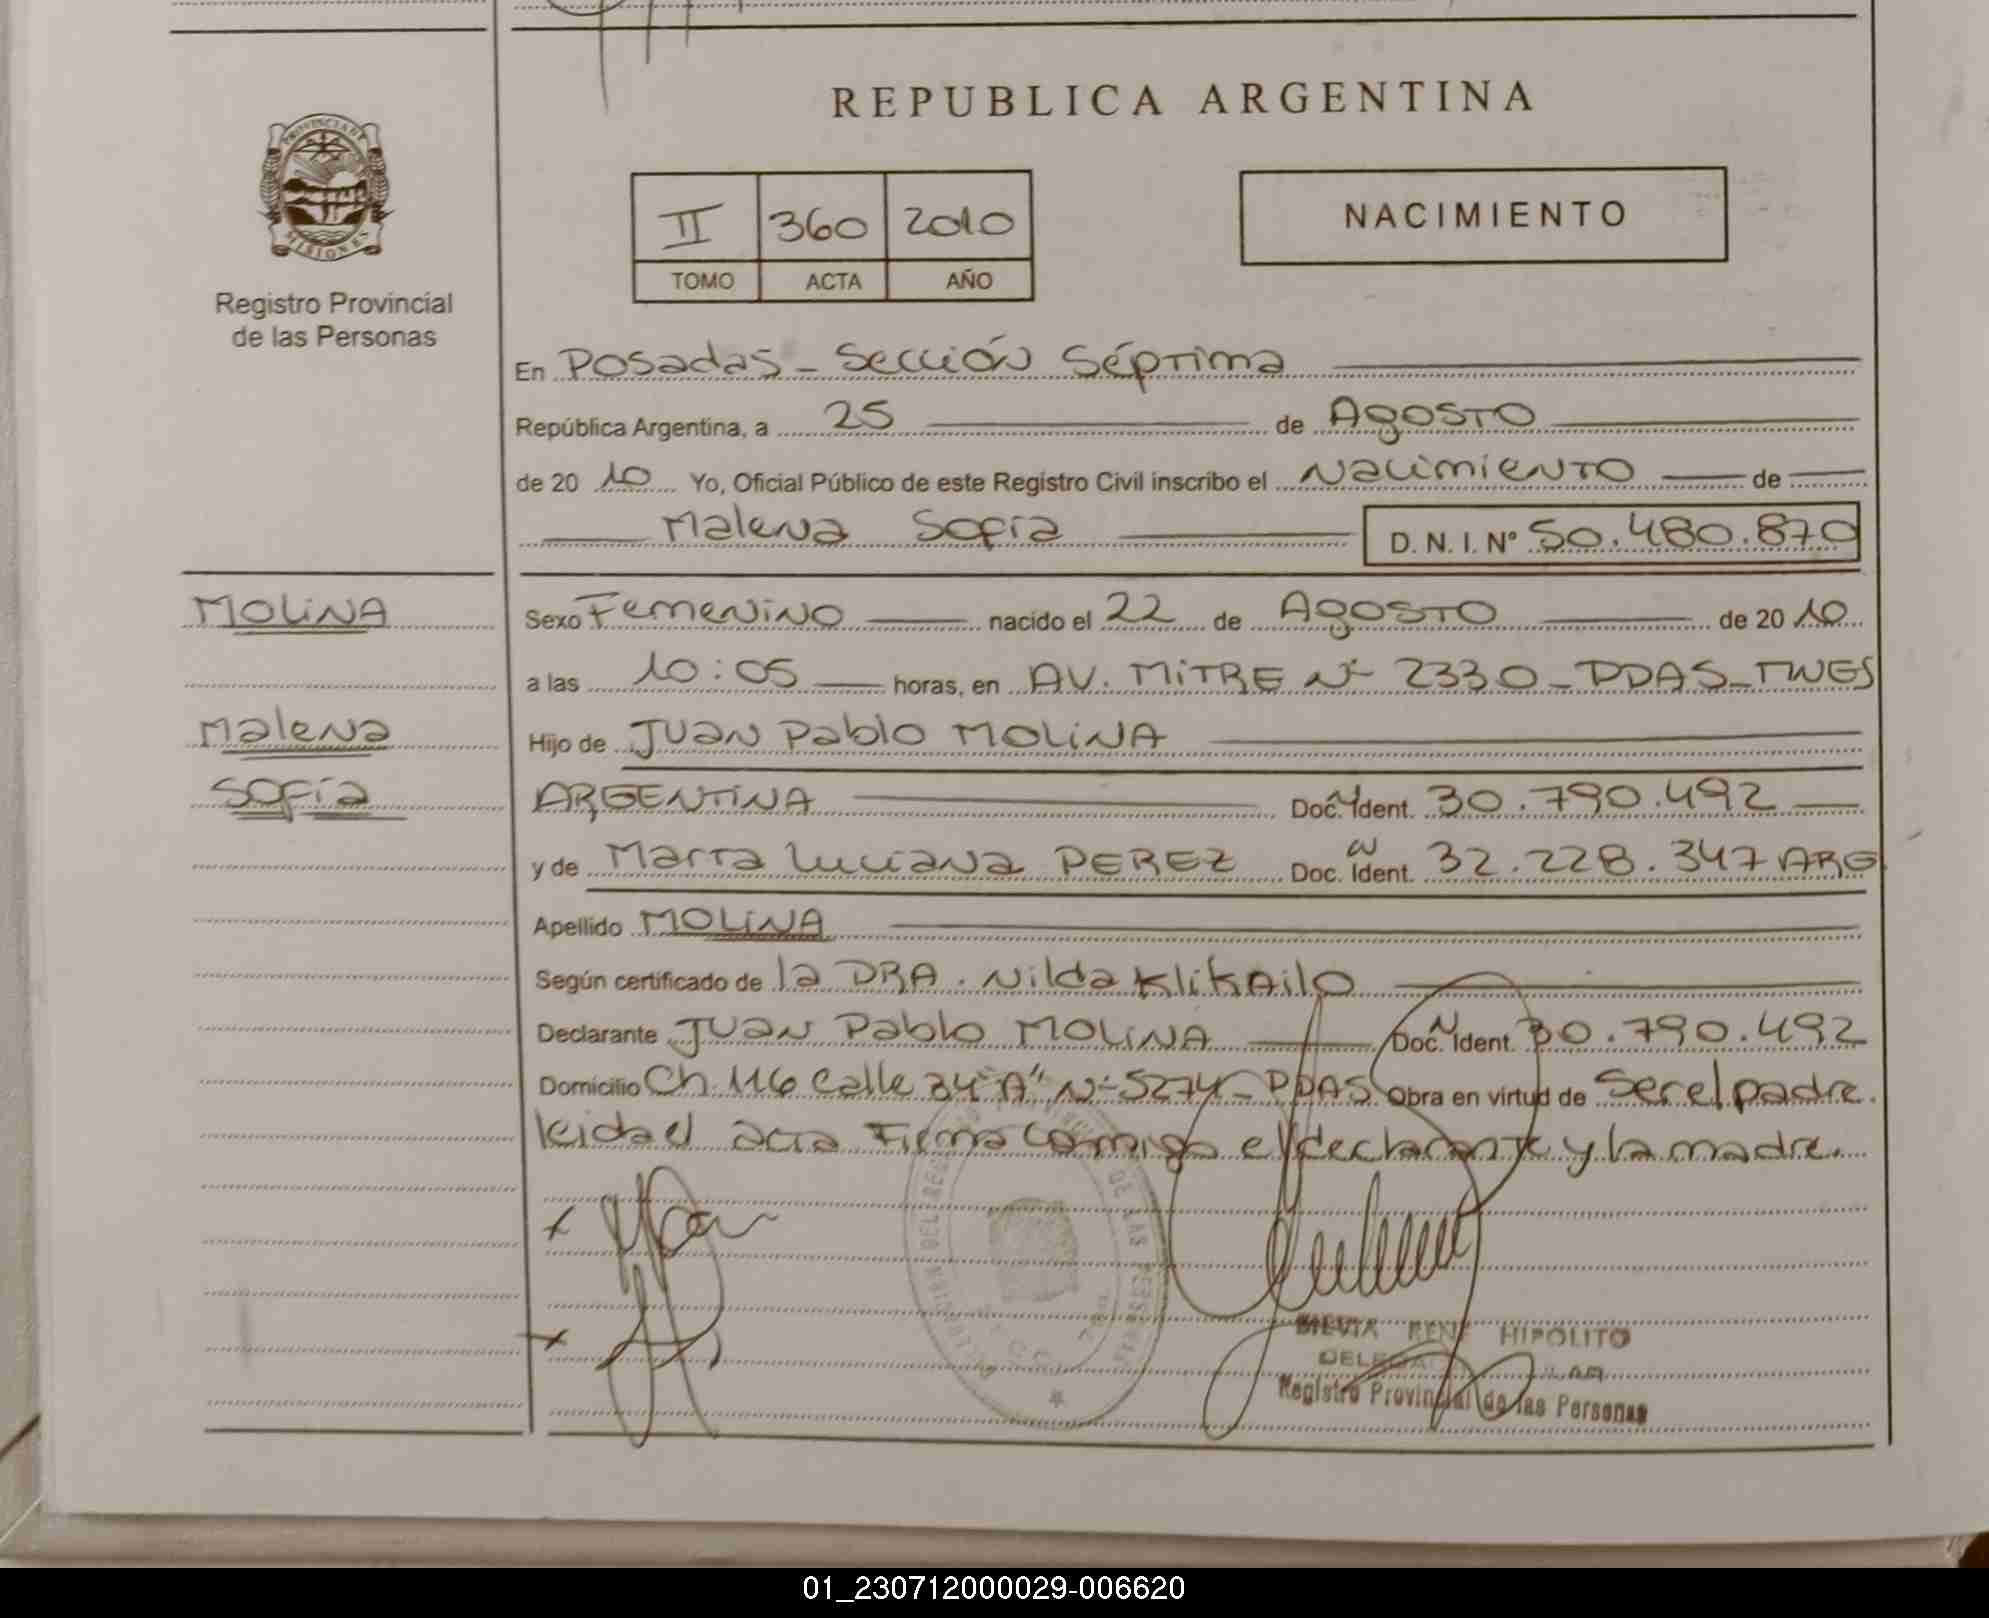 REPUBLICA ARGENTINA
PROVINCIA DE
MISIONES
Registro Provincial
de las Personas
II 360 2010
TOMO ACTA AÑO
NACIMIENTO
En Posadas - Sección Séptima
República Argentina, a 25 de Agosto
de 20 10 Yo, Oficial Público de este Registro Civil inscribo el Nacimiento de
Malena Sofía D. N. I. Nº 50.480.870
MOLINA
Malena
Sofía
Sexo Femenino nacido el 22 de Agosto de 20 10
a las 10:05 horas, en AV. MITRE Nº 2330 - PDAS - MNES
Hijo de Juan Pablo MOLINA
ARGENTINA Doc. N Ident. 30.790.492
y de Marta Luciana PEREZ Doc. N Ident. 32.228.347 ARG
Apellido MOLINA
Según certificado de la DRA. Nilda Klikailo
Declarante Juan Pablo MOLINA Doc. N Ident. 30.790.492
Domicilio Ch. 116 Calle 34 "A" Nº 5274 - PDAS Obra en virtud de Ser el padre.
leida el acta Firma conmigo el declarante y la madre.
DE LAS PERSONAS
RENE HIPOLITO
Registro Provincial de las Personas
01_230712000029-006620